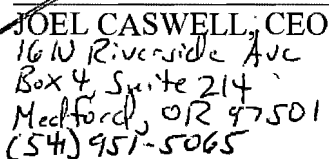 JOEL CASWELL, CEO
16 N Riverside Ave
Box 4, Suite 214
Medford, OR 97501
(541) 951-5065